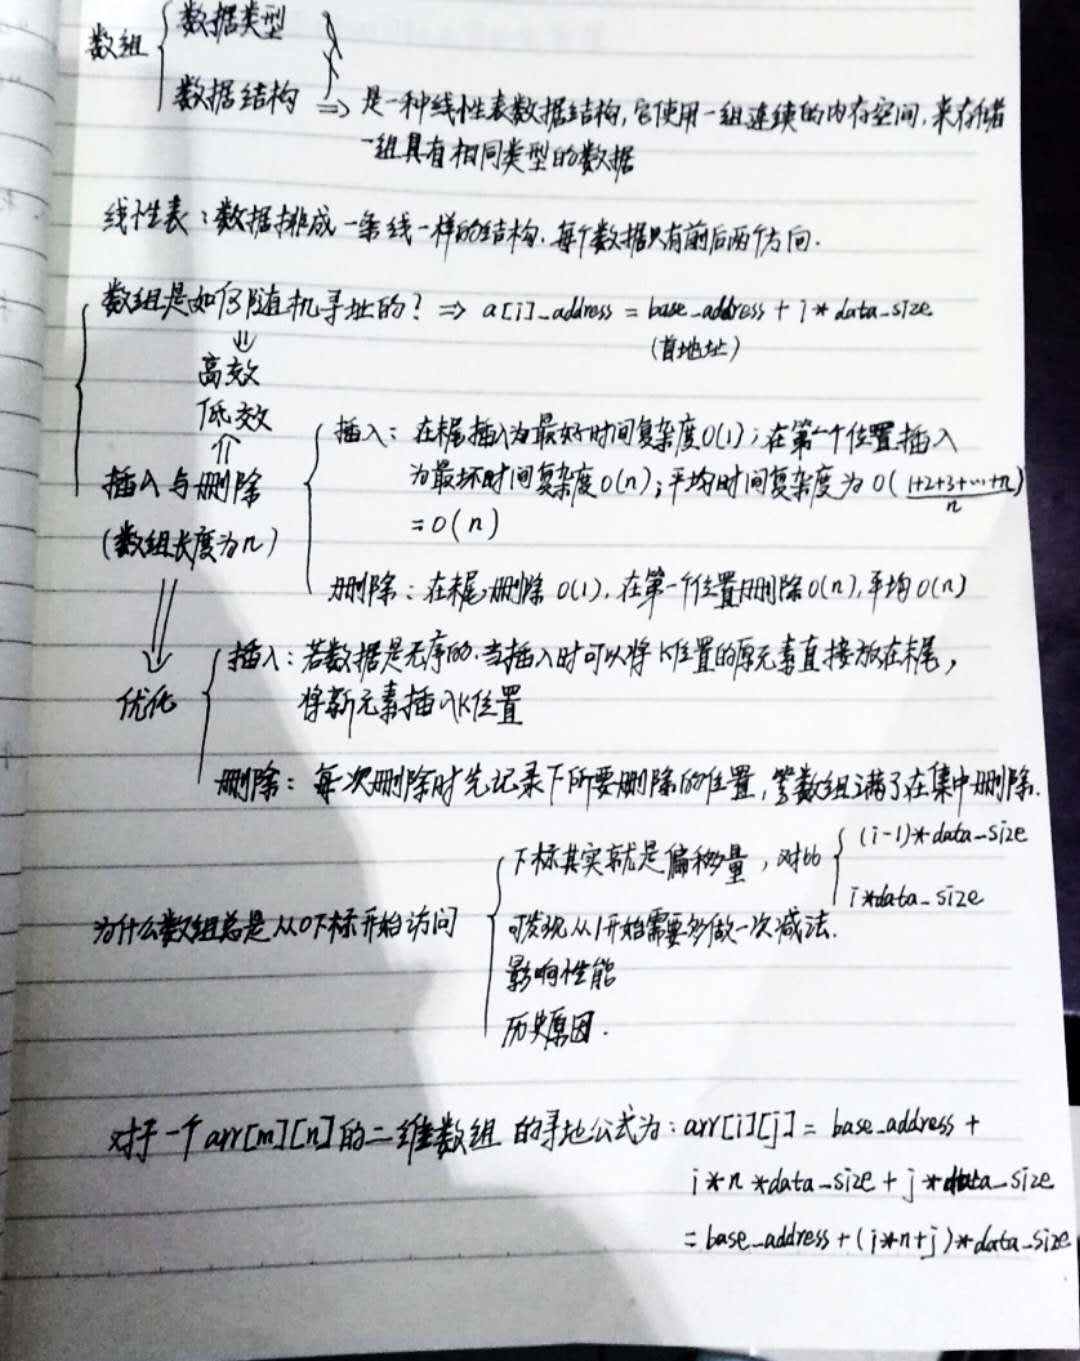 数组
数据类型
数据结构 => 是一种线性表数据结构,它使用一组连续的内存空间,来存储
一组具有相同类型的数据
线性表:数据排成一条线一样的结构.每个数据只有前后两个方向.
数组是如何随机寻址的? => a[i]_address = base_address + i * data_size
(首地址)
高效
低效
插入与删除
(数组长度为n)
插入: 在末尾插入为最好时间复杂度O(1);在第一个位置插入
为最坏时间复杂度O(n);平均时间复杂度为O((1+2+3+…+n)/n)
=O(n)
删除:在末尾删除 O(1),在第一个位置删除O(n),平均O(n)
优化
插入:若数据是无序的.当插入时可以将K位置的原元素直接放在末尾,
将新元素插入K位置
删除:每次删除时先记录下所要删除的位置,等数组满了在集中删除.
为什么数组总是从0下标开始访问
下标其实就是偏移量,对比
(i-1)*data_size
i*data_size
可发现从1开始需要多做一次减法.
影响性能
历史原因.
对于一个arr[m][n]的二维数组 的寻址公式为:arr[i][j] = base_address +
i * n * data_size + j * data_size
= base_address + (i*n+j)*data_size